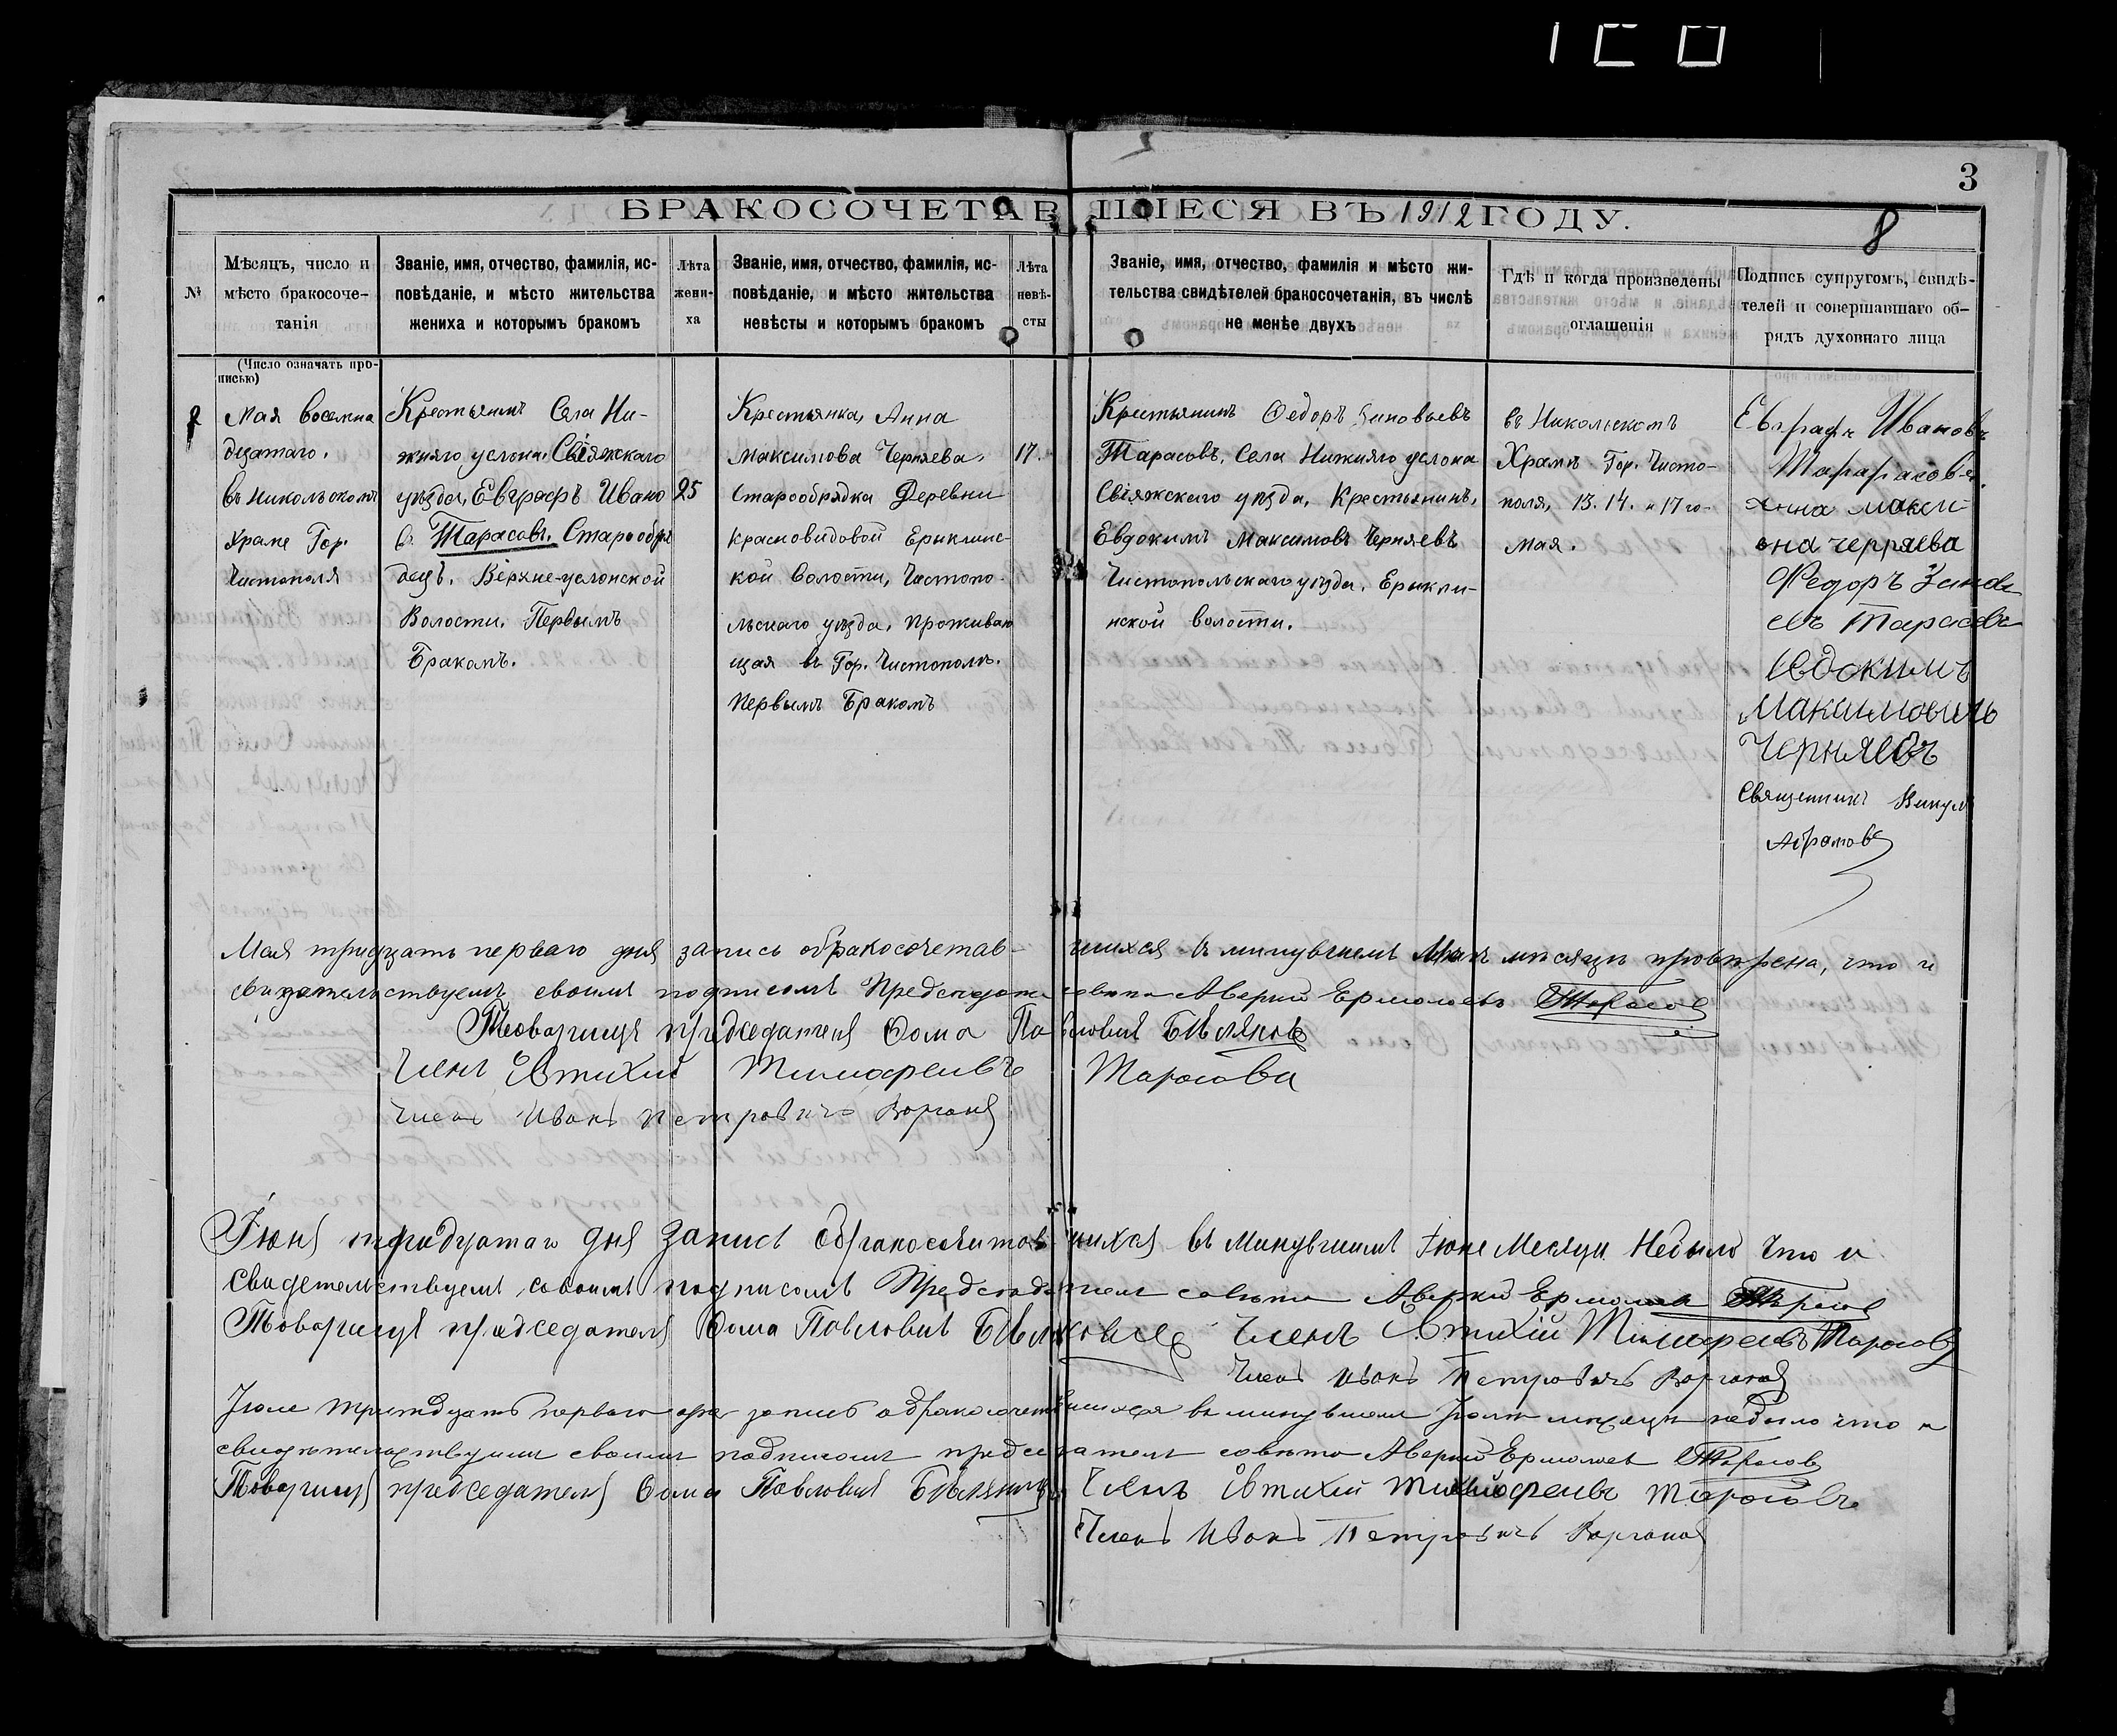 3
БРАКОСОЧЕТАВШІЕСЯ ВЪ 1912 ГОДУ.
8
№
Мѣсяцъ, число и
мѣсто бракосоче-
танія
Званіе, имя, отчество, фамилія, ис-
повѣданіе, и мѣсто жительства
жениха и которымъ бракомъ
Лѣта
жени-
ха
Званіе, имя, отчество, фамилія, ис-
повѣданіе, и мѣсто жительства
невѣсты и которымъ бракомъ
Лѣта
невѣ-
сты
Званіе, имя, отчество, фамилія и мѣсто жи-
тельства свидѣтелей бракосочетанія, въ числѣ
не менѣе двухъ
Гдѣ и когда произведены
оглашенія
Подпись супругомъ, свидѣ-
телей и совершавшаго об-
рядъ духовнаго лица
(Число означать про-
писью)
Мая восемна
дцатаго.
въ Никольскомъ
Храме Гор.
Чистополя
Крестьянинъ Села Ни-
жняго услона, Свіяжскаго
уѣзда, Евграфъ Ивано
въ Тарасовъ. Старообря
децъ. Верхне-услонской
Волости. Первымъ
Бракомъ.
25
Крестьянка, Анна
Максимова Черняева.
Старообрядка Деревни
Красновидовой Ерыклинс-
кой Волости, Чистопо-
льскаго уѣзда, Проживаю
щая въ Гор. Чистополѣ.
Первымъ Бракомъ
17.
Крестьянинъ Ѳедоръ Зиновьевъ
Тарасовъ, Села Нижняго услона
Свіяжскаго уѣзда, Крестьянинъ,
Евдокимъ Максимовъ Черняевъ
Чистопольскаго уѣзда. Ерыкли-
нской волости.
въ Никольскомъ
Храмѣ Гор. Чисто-
поля, 13. 14. и 17 го-
Мая.
Евграфъ Ивановъ
Тарарасовъ.
Анна макси
она черряева
Федоръ Зинов
евъ Тарасовъ
Евдокимъ
Максимовичъ
Черняевъ
Священникъ Викул
Абрамовъ
Мая тридцать перваго дня запись обракосочетав-шихся въ минувшемъ Маѣ месяцѣ провѣрена, что и
свидетельствуемъ своимъ подписомъ Председатель совета Аверий Ермолаевъ Тарасов
Товарищъ председателя Ѳома Павловичъ Бѣляков
Членъ Евтихий Тимофеивъ Тарасовъ
Членъ Иванъ Петровичъ
Іюня тридцатаго дня запись обракосочитавшихся въ минувшимъ Іюне Месяци Небыло Что и
свидетельствуемъ своимъ подписомъ Председатель совета Аверий Ермолаев Тарасов
Товарищъ председателя Ѳома Павловичъ Бѣляковъ Членъ Евтихій Тимофеивъ Тарасовъ
Членъ Иванъ Петровичъ
Іюле тридцать перваго дня запись обракосочетавшихся въ минувшем Іюле месяце небыло что и
свидетельствуим своимъ подписомъ председатель совета Аверий Ермолаев Тарасов
Товарищъ председателя Ѳома Павловичъ Бѣляковъ Членъ Евтихий Тимофеивъ Тарасовъ
Членъ Иванъ Петровичъ